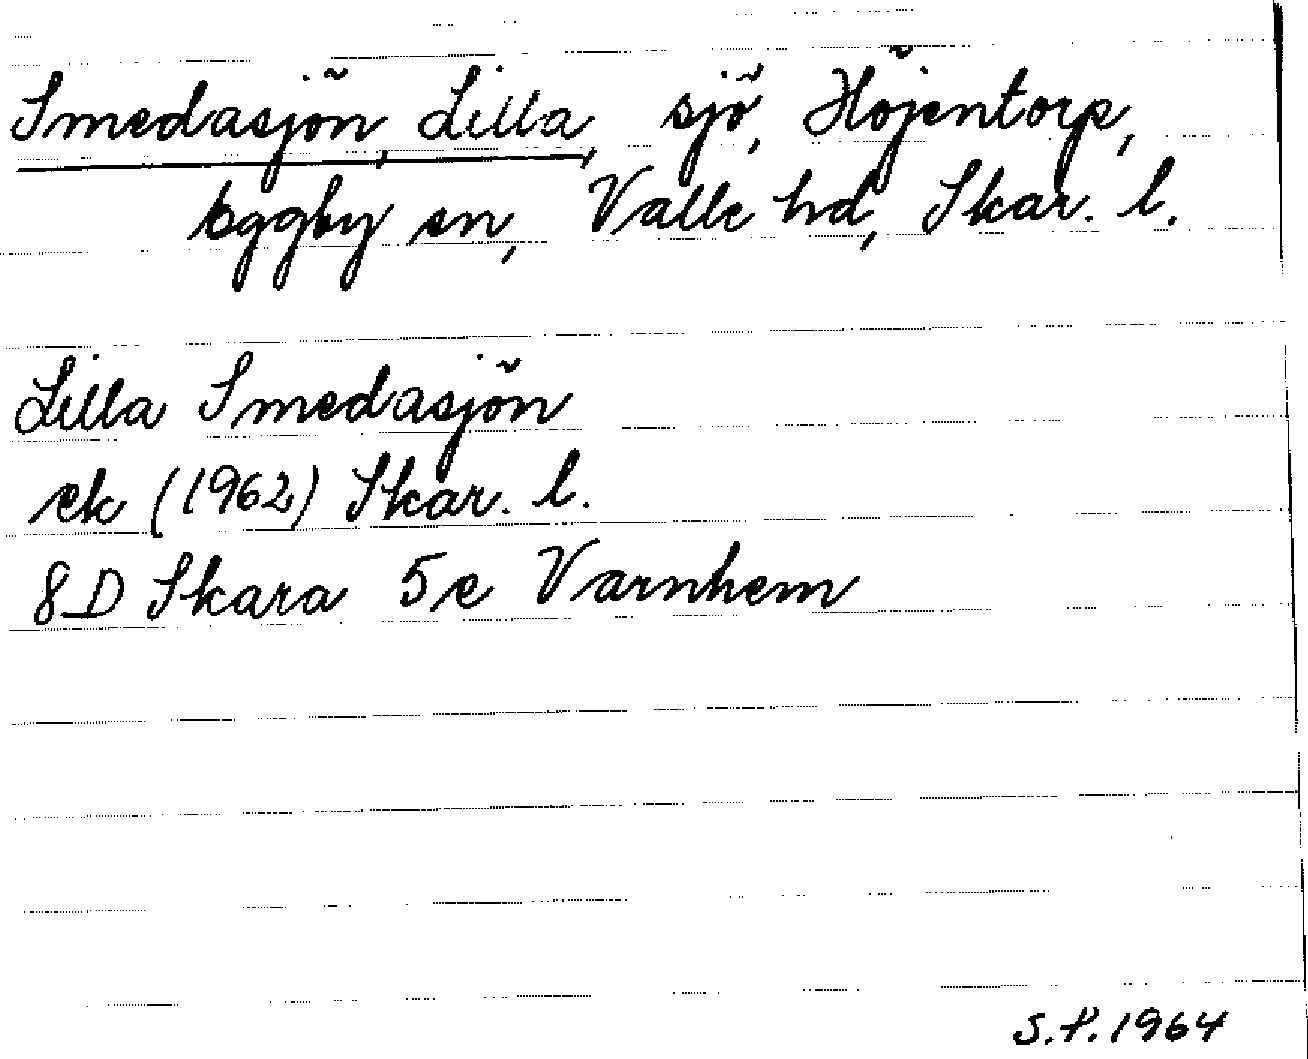 Smedasjön, Lilla, sjö, Höjentorp,
Eggby sn, Valle hd, Skar. l.
Lilla Smedasjön
ek (1962) Skar. l.
8D Skara 5e Varnhem
S.P. 1964